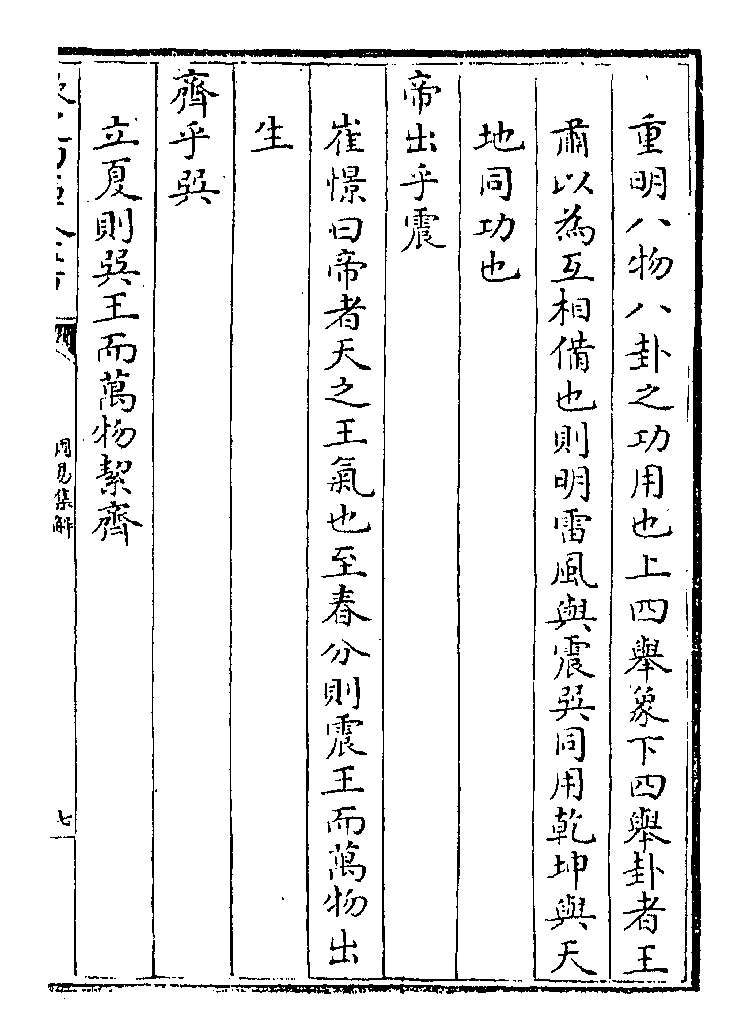 重明八物八卦之功用也上四舉象下四舉卦者王
肅以為互相備也則明雷風與震㢲同用乾坤與天
地同功也
帝出乎震
崔憬曰帝者天之王氣也至春分則震王而萬物出
生
齊乎㢲
立夏則㢲王而萬物絜齊
周易集解
七